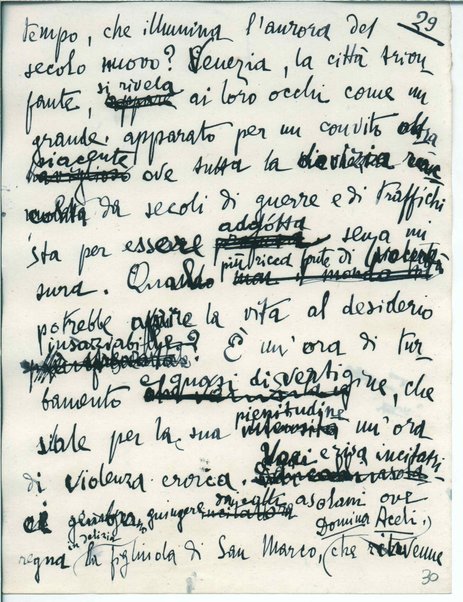 29
tempo, che illumina l'aurora del
secolo nuovo? Venezia, la città trion
fante, si rivela ai loro occhi come un
grande apparato per un convito
ove tutta la dovizia
da secoli di guerre e di traffichi
sta per essere addotta senza mi
sura. Quale più ricca fonte di piacere
potrebbe aprire la vita al desiderio
insaziabile? È un'ora di tur
bamento e quasi di vertigine, che
vale per la sua pienitudine un'ora
di violenza eroica. Voci e risa incitatri
ci giungere dai colli asolani ove
regna in delizia la figliuola di San Marco, Domina Aceli, che rinvenne
30